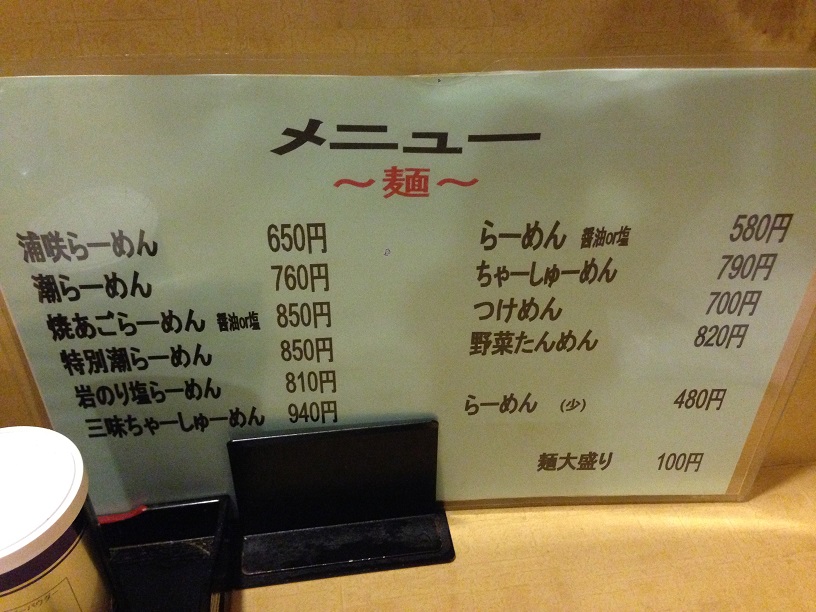 メニュー
～麺～
浦咲らーめん 650円
潮らーめん 760円
焼あごらーめん 醤油or塩 850円
特別潮らーめん 850円
岩のり塩らーめん 810円
三味ちゃーしゅーめん 940円
らーめん 醤油or塩 580円
ちゃーしゅーめん 790円
つけめん 700円
野菜たんめん 820円
らーめん (少) 480円
麺大盛り 100円